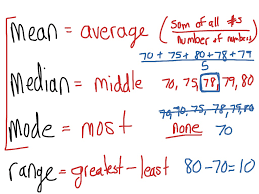 mean = average (Sum of all #s / Number of numbers)
70 + 75 + 80 + 78 + 79
5
Median = middle 70, 75, 78, 79, 80
70, 75, 78, 79, 80
mode = most none 70
range = greatest - least 80 - 70 = 10